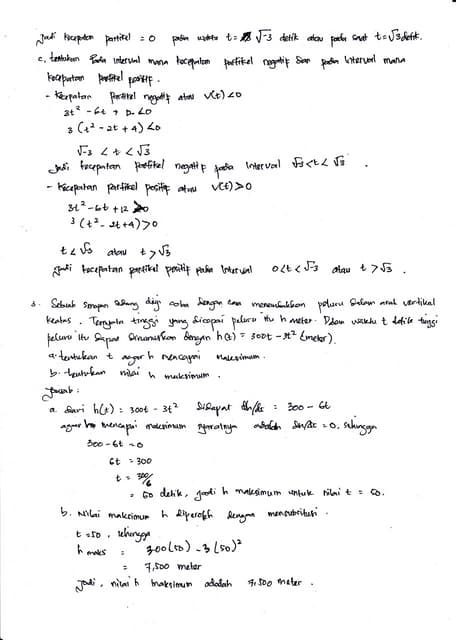 Jadi kecepatan partikel = 0 pada waktu t = √-3 detik atau pada saat t = √3 detik.
c. tentukan Pada interval mana kecepatan partikel negatif dan pada interval mana
kecepatan partikel positif.
- Kecepatan Partikel negatif atau v(t) < 0
3t² - 6t + 12 < 0
3 (t² - 2t + 4) < 0
√-3 < t < √3
Jadi kecepatan partikel negatif pada interval √-3 < t < √3 .
- Kecepatan partikel positif atau v(t) > 0
3t² - 6t + 12 > 0
3 (t² - 2t + 4) > 0
t < √-3 atau t > √3
Jadi kecepatan partikel positif pada interval 0 < t < √-3 atau t > √3 .
3. Sebuah senapan sedang diuji coba dengan cara menembakkan peluru dalam arah vertikal
keatas . Ternyata tinggi yang dicapai peluru itu h meter. Dalam waktu t detik tinggi
peluru itu dapat dirumuskan dengan h(t) = 300t - 3t² (meter).
a. tentukan t agar h mencapai maksimum.
b. tentukan nilai h maksimum .
Jawab :
a. dari h(t) = 300t - 3t² didapat dh/dt = 300 - 6t
agar h mencapai maksimum syaratnya adalah dh/dt = 0. sehingga
300 - 6t = 0
6t = 300
t = 300/6
= 50 detik, jadi h maksimum untuk nilai t = 50.
b. Nilai maksimum h diperoleh dengan mensubstitusi .
t = 50 , sehingga
h maks = 300(50) - 3(50)²
= 7,500 meter
Jadi, nilai h maksimum adalah 7,500 meter .